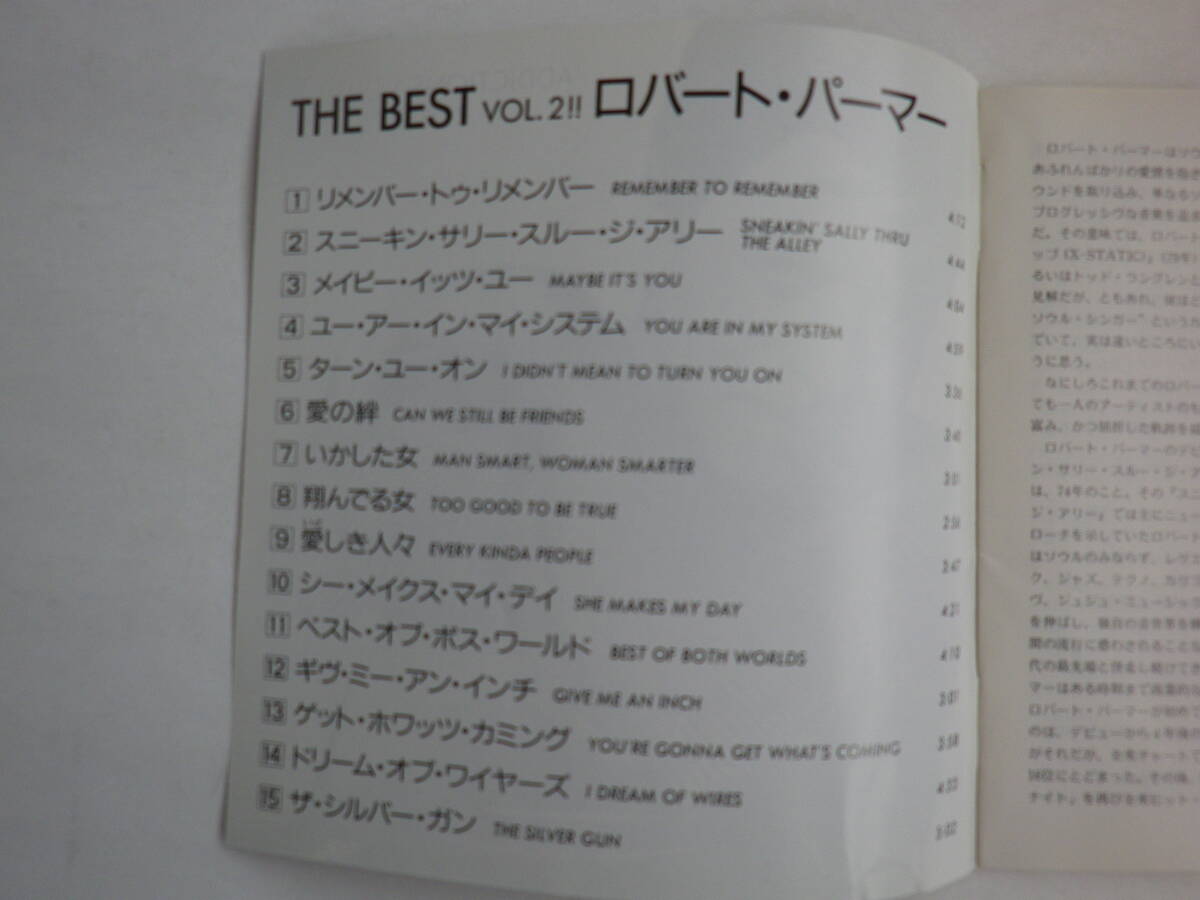 THE BEST VOL.2!! ロバート・パーマー
1 リメンバー・トゥ・リメンバー REMEMBER TO REMEMBER 4:12
2 スニーキン・サリー・スルー・ジ・アリー SNEAKIN' SALLY THRU THE ALLEY 4:44
3 メイビー・イッツ・ユー MAYBE IT'S YOU
4 ユー・アー・イン・マイ・システム YOU ARE IN MY SYSTEM
5 ターン・ユー・オン I DIDN'T MEAN TO TURN YOU ON
6 愛の絆 CAN WE STILL BE FRIENDS
7 いかした女 MAN SMART, WOMAN SMARTER
8 翔んでる女 TOO GOOD TO BE TRUE
9 愛しき人々 EVERY KINDA PEOPLE
10 シー・メイクス・マイ・デイ SHE MAKES MY DAY 4:21
11 ベスト・オブ・ボス・ワールド BEST OF BOTH WORLDS 4:10
12 ギヴ・ミー・アン・インチ GIVE ME AN INCH
13 ゲット・ホワッツ・カミング YOU'RE GONNA GET WHAT'S COMING
14 ドリーム・オブ・ワイヤーズ I DREAM OF WIRES
15 ザ・シルバー・ガン THE SILVER GUN
ロバート・パーマーはソウ
あふれんばかりの愛情を抱き
ウンドを取り込み、単なる
プログレッシヴな音楽を追
だ。その意味では、ロバート
るいはトッド・ラングレンと
見解だが、ともあれ、彼は
ソウル・シンガー"という
でいて、実は遠いところにい
うに思う。
なにしろこれまでのロバー
ても一人のアーティストのも
富み、かつ屈折した軌跡を
ロバート・パーマーのデビ
ン・サリー・スルー・ジ・ア
は、74年のこと。その『ス
ジ・アリー』では主にニュー
ローチを示していたロバート
はソウルのみならず、レゲエ
ク、ジャズ、テクノ、カリプ
を伸ばし、独自の音世界を
間の流行に惑わされることな
代の最先端と併走し続けて
マーはある時期まで商業的
ロバート・パーマーが初めて
のは、デビューから4年後の
がそれだが、全米チャートで